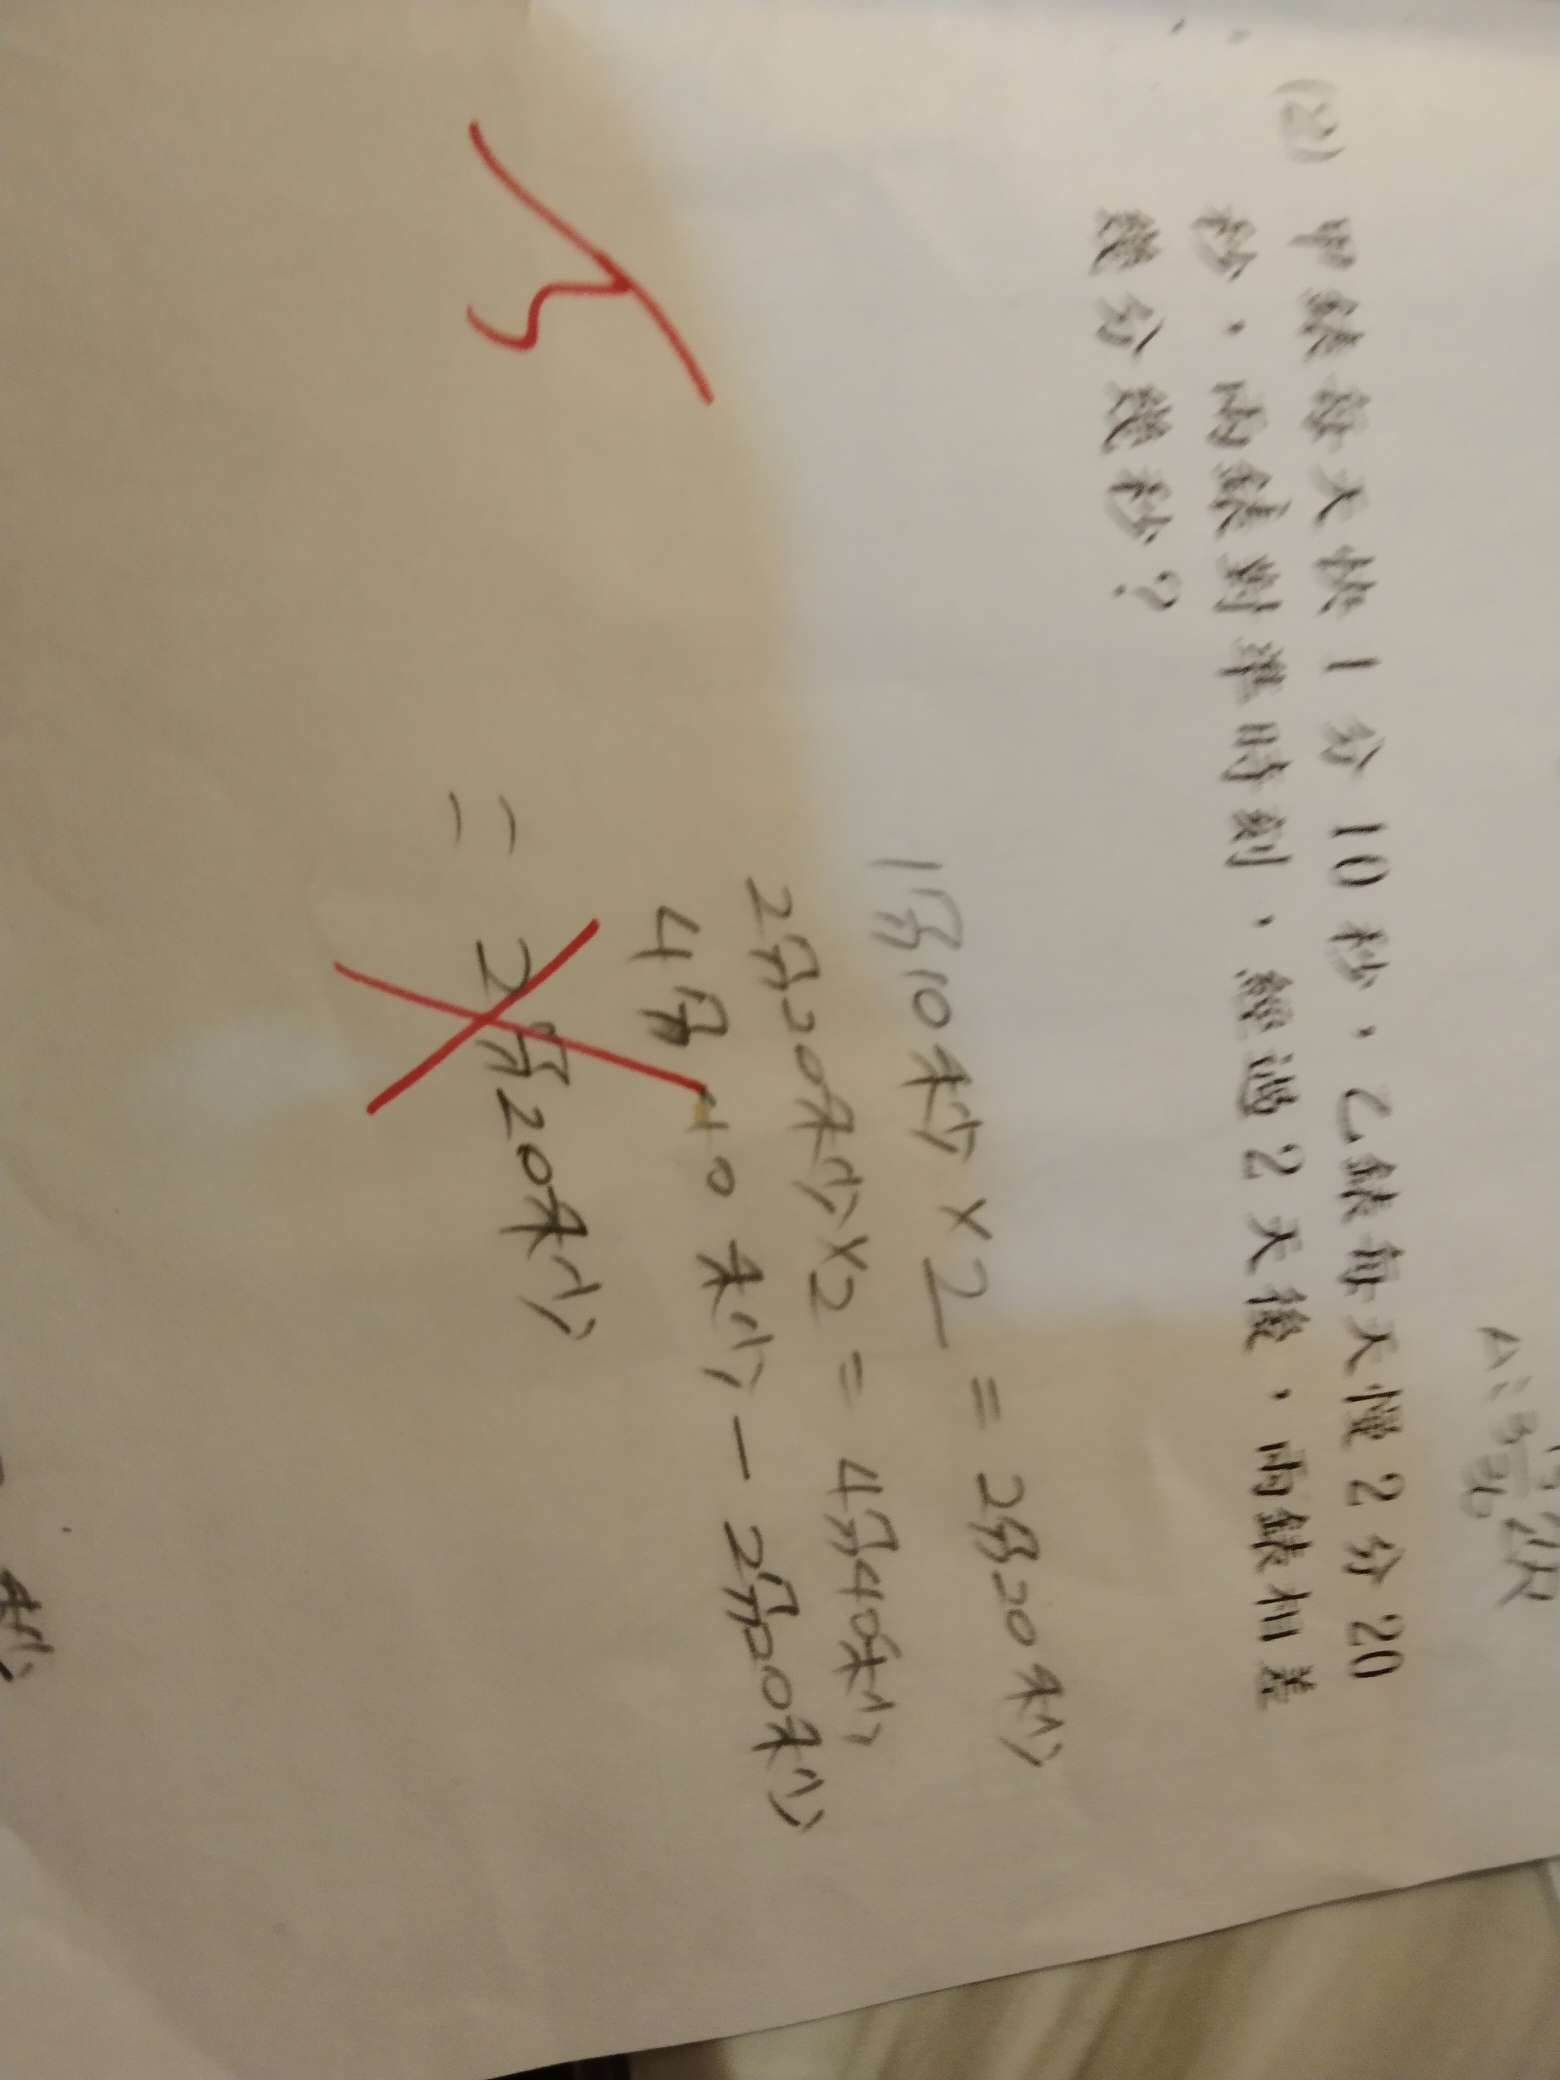 (2) 甲錶每天快1分10秒，乙錶每天慢2分20
秒，兩錶對準時刻，經過2天後，兩錶相差
幾分幾秒？
1分10秒×2=2分20秒
2分20秒×2=4分40秒
4分40秒-2分20秒
=2分20秒
秒